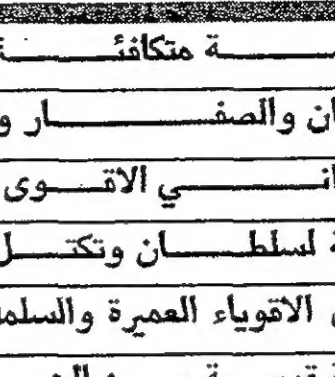 ـة متكافئـة
ان والصفـار و
انـي الاقـوى
ة لسلطـان وتكتـل
الاقوياء العميرة والسلمـ